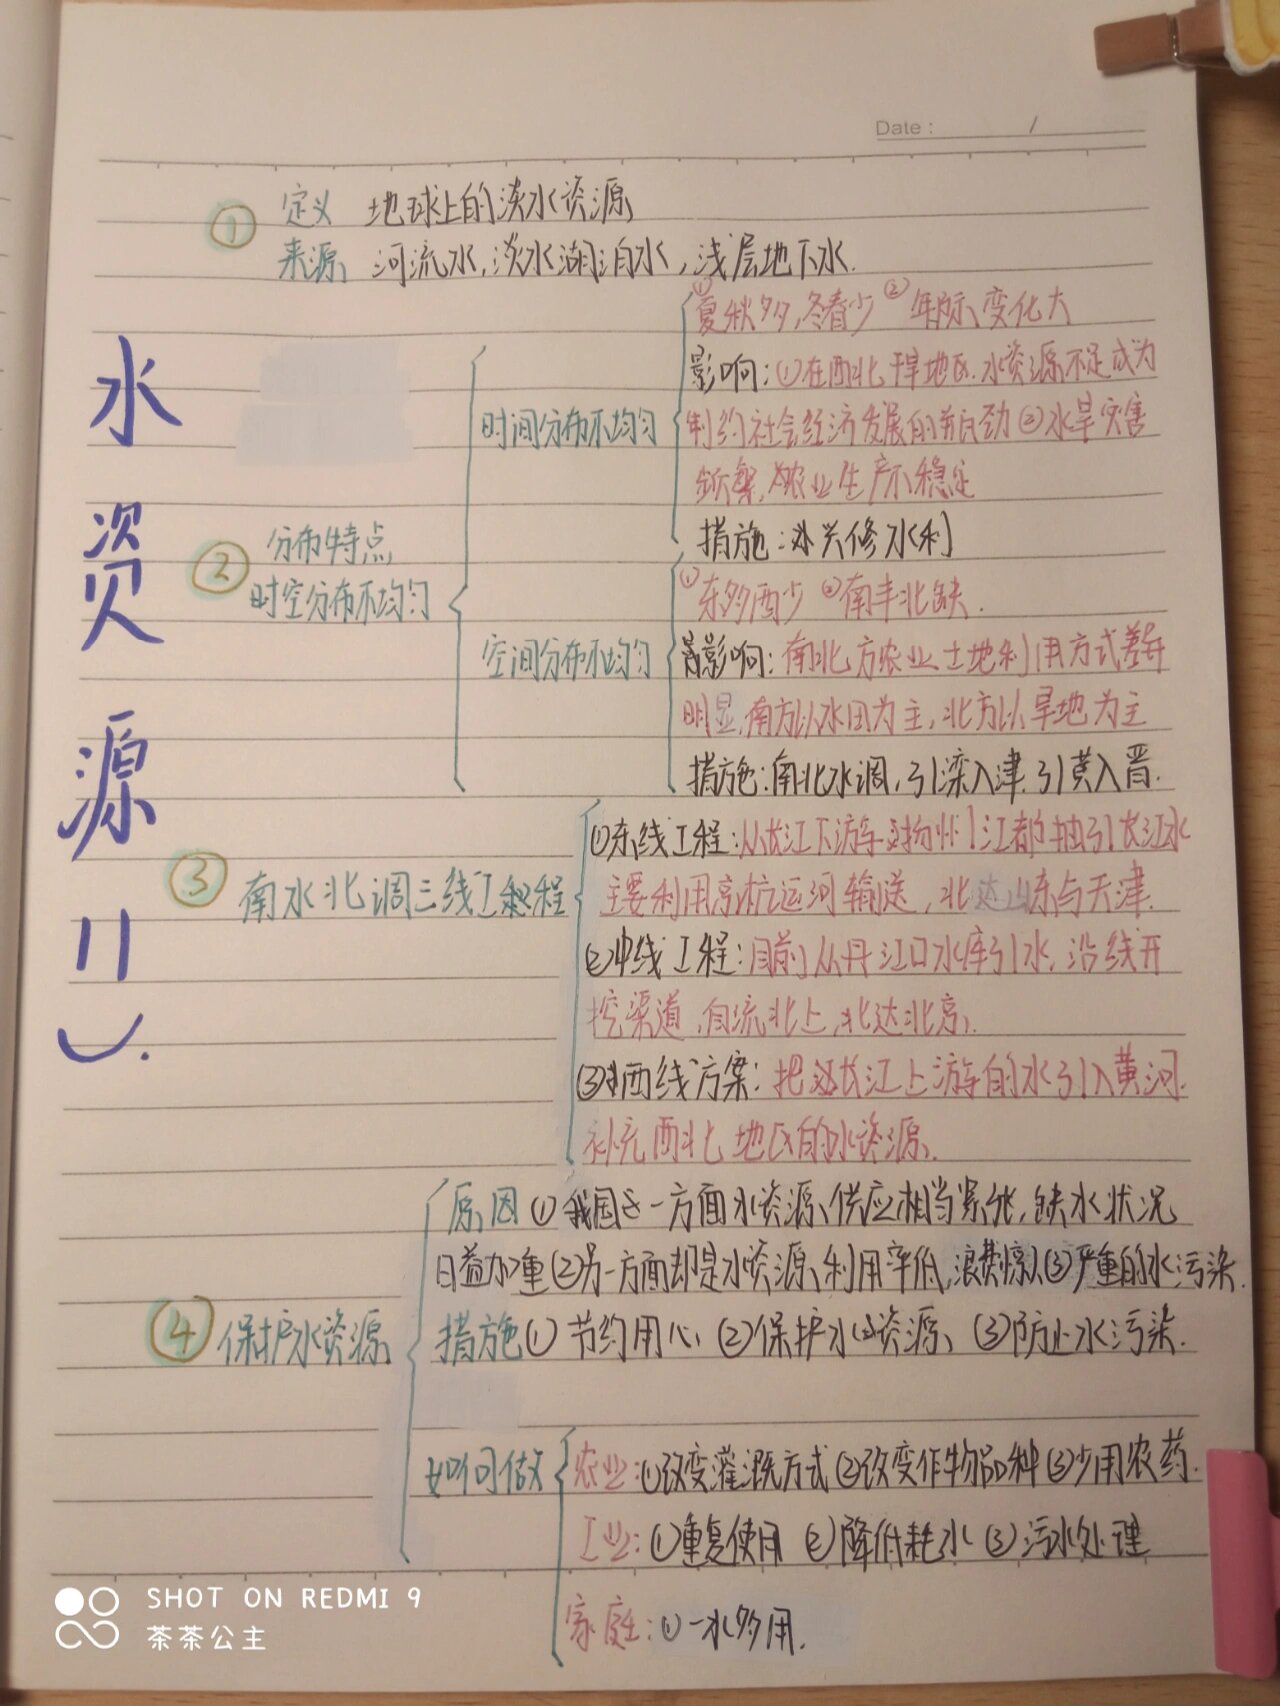 Date: /
① 定义 地球上的淡水资源
来源 河流水,淡水湖泊水,浅层地下水.
水资源
②分布特点
时空分布不均匀
时间分布不均匀
①夏秋多,冬春少 ②年际变化大
影响:①在西北干旱地区.水资源不足成为
制约社会经济发展的 ②水旱灾害
频繁,农业生产不稳定
措施:兴修水利
空间分布不均匀
①东多西少 ②南丰北缺.
影响:南北方农业土地利用方式差异
明显,南方以水田为主,北方以旱地为主
措施:南北水调,引滦入津.引黄入晋.
③南水北调三线工程
①东线工程:从长江下游扬州江都抽引长江水
主要利用京杭运河输送,北达山东与天津.
②中线工程:目前从丹江口水库引水,沿线开
挖渠道,自流北上,北达北京.
③西线方案:把长江上游的水引入黄河.
补充西北地区的水资源.
④保护水资源
原因①我国一方面水资源供应相当紧张,缺水状况
日益加重②另一方面却是水资源利用率低,浪费惊人③严重的水污染.
措施①节约用心②保护水资源、③防止水污染.
如何做
农业:①改变灌溉方式②改变作物品种③少用农药.
工业:①重复使用 ②降低耗水 ③污水处理
家庭:①一水多用.
SHOT ON REDMI 9
茶茶公主